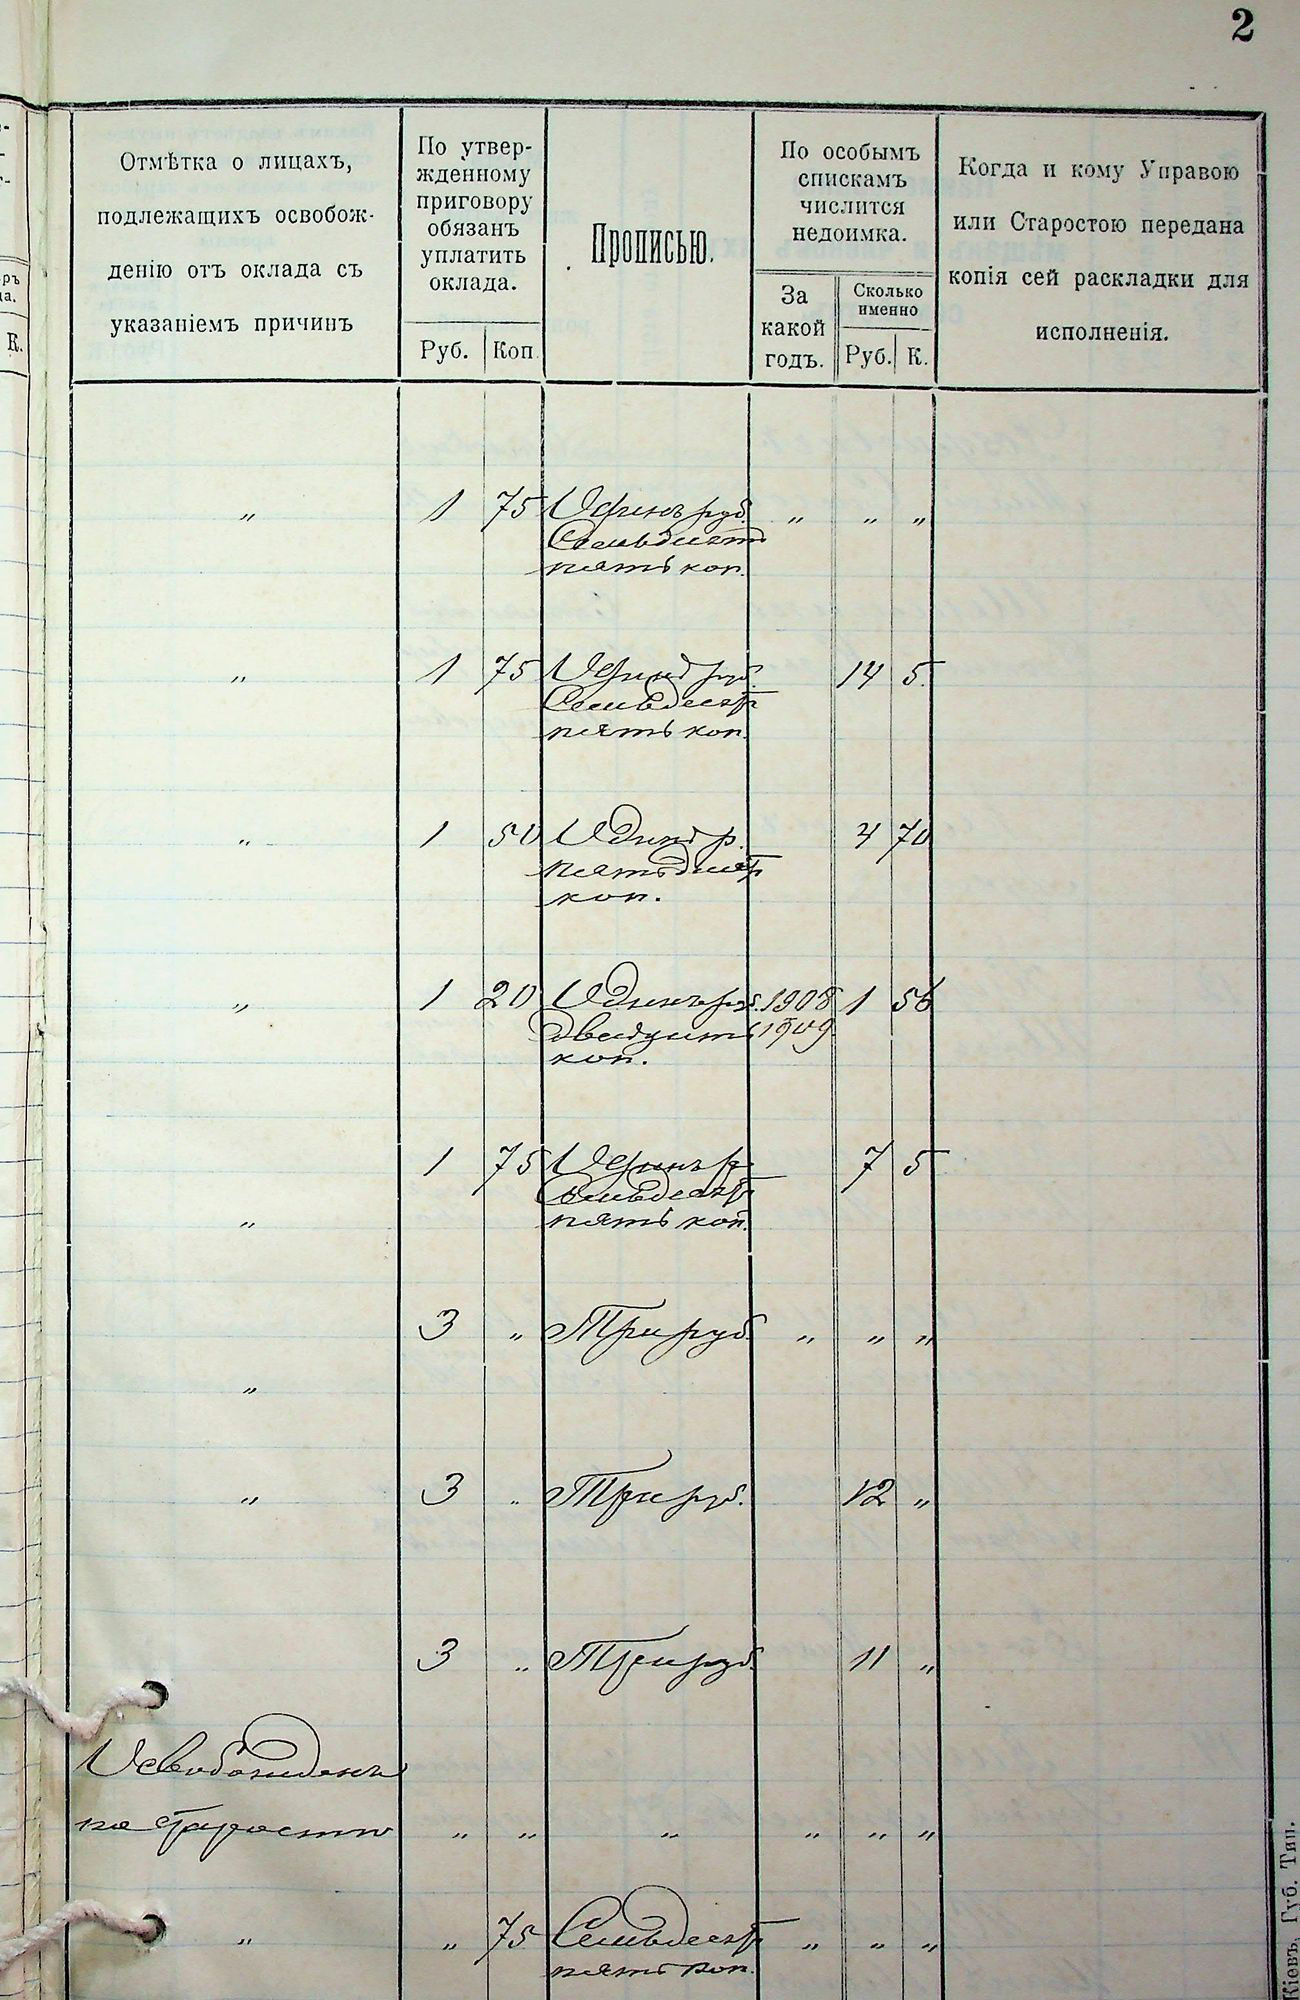 2
Отмѣтка о лицахъ,
подлежащихъ освобож-
денію отъ оклада съ
указаніемъ причинъ
По утвер-
жденному
приговору
обязанъ
уплатить
оклада.
Руб. Коп.
Прописью.
По особымъ
спискамъ
числится
недоимка.
За
какой
годъ.
Сколько
именно
Руб. К.
Когда и кому Управою
или Старостою передана
копія сей раскладки для
исполненія.
К.
„ 1 75 Одинъ руб. „ „ „
Семьдесят
пять коп.
„ 1 75 Одинъ руб. 14 5.
Семьдесят
пять коп.
„ 1 50 Одинъ р. 4 70
пятьдесят
коп.
„ 1 20 Одинъ руб. 1908 1 56
двадцать 1909.
коп.
1 75 Одинъ р. 7 5
Семьдесят
„ пять коп.
3 „ Три руб. „ „ „
„
„ 3 „ Три руб. 12 „
3 „ Три руб. 11 „
Освобожденъ
по старости „ „ „ „ „ „
„ „ 75 Семьдесят „ „ „
пять коп.
Кіевъ, Губ. Тип.